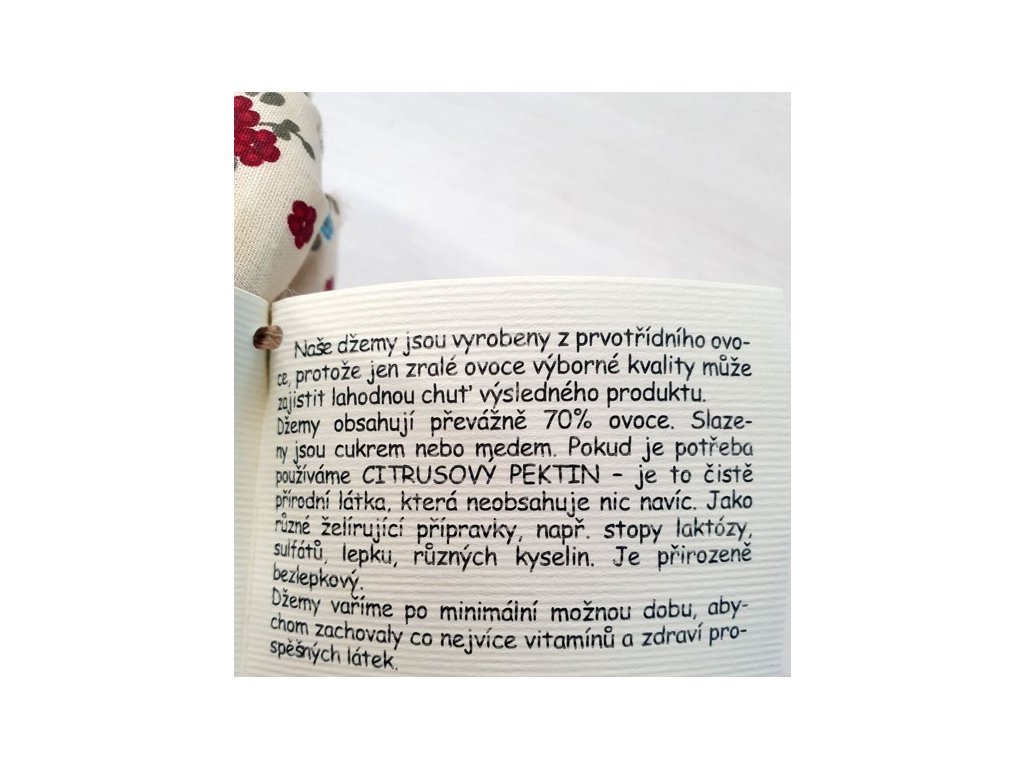 Naše džemy jsou vyrobeny z prvotřídního ovo-
ce, protože jen zralé ovoce výborné kvality může
zajistit lahodnou chuť výsledného produktu.
Džemy obsahují převážně 70% ovoce. Slaze-
ny jsou cukrem nebo medem. Pokud je potřeba
používáme CITRUSOVÝ PEKTIN - je to čistě
přírodní látka, která neobsahuje nic navíc. Jako
různé želírující přípravky, např. stopy laktózy,
sulfátů, lepku, různých kyselin. Je přirozeně
bezlepkový.
Džemy vaříme po minimální možnou dobu, aby-
chom zachovaly co nejvíce vitamínů a zdraví pro-
spěšných látek.